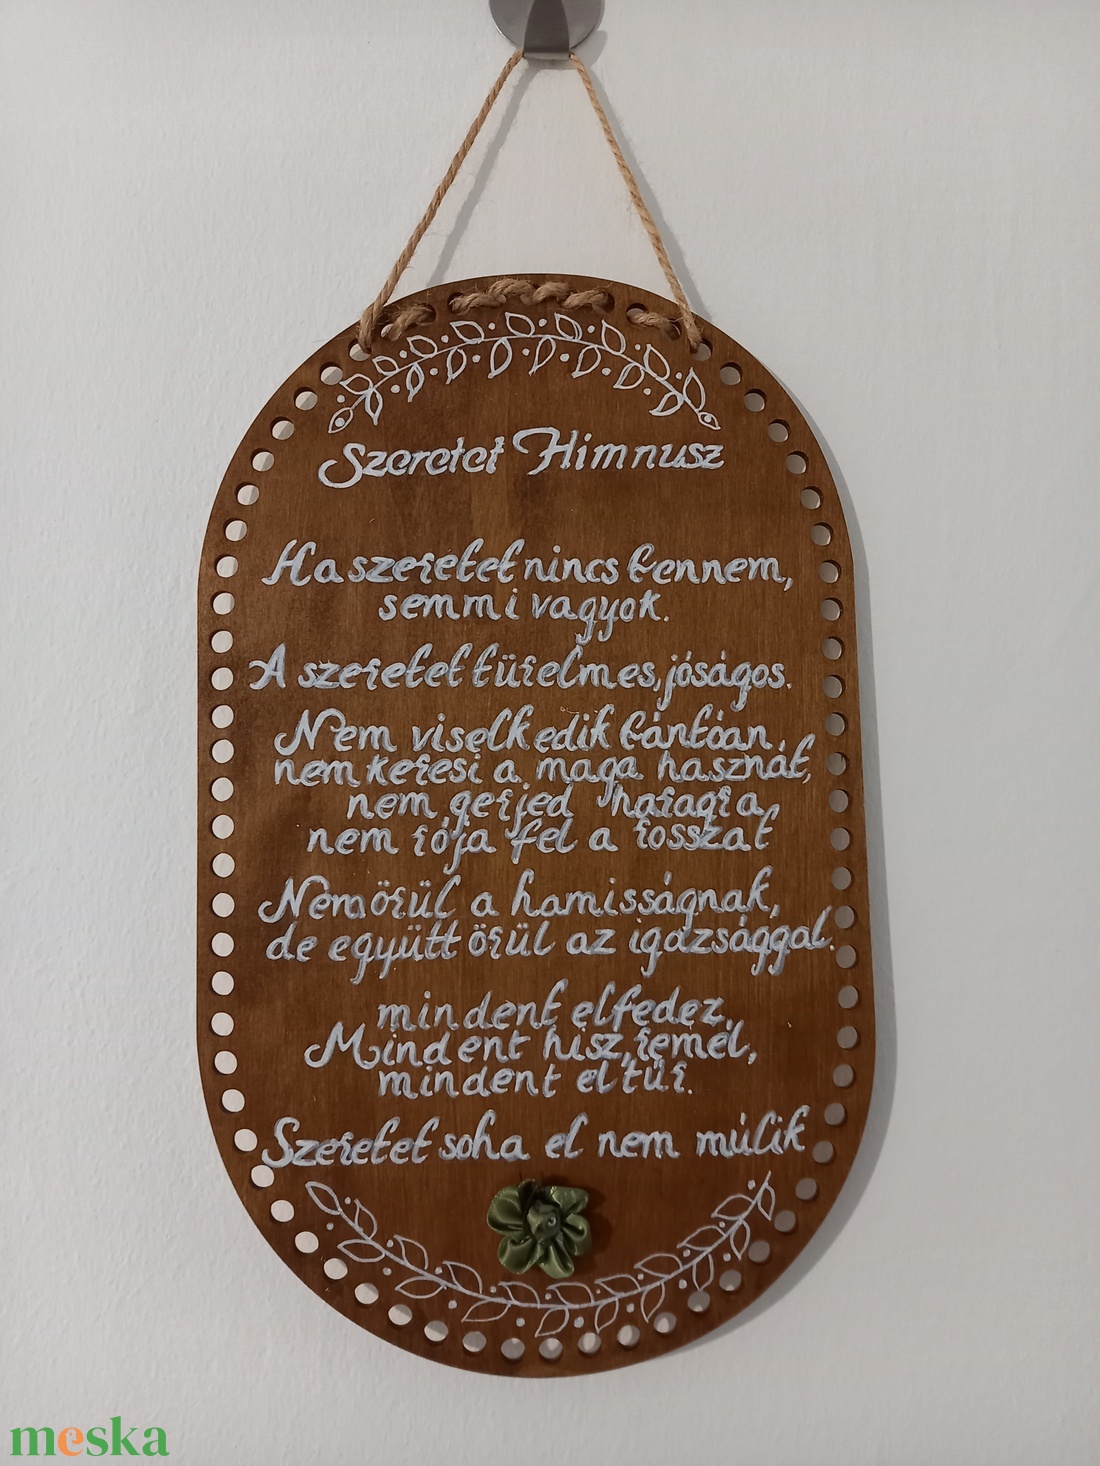 Szeretet Himnusz
Ha szeretet nincs bennem,
semmi vagyok.
A szeretet türelmes, jóságos.
Nem viselkedik bántóan,
nem keresi a maga hasznát,
nem gerjed haragra,
nem rója fel a rosszat
Nem örül a hamisságnak,
de együtt örül az igazsággal.
mindent elfedez,
Mindent hisz, remél,
mindent eltűr.
Szeretet soha el nem múlik
meska